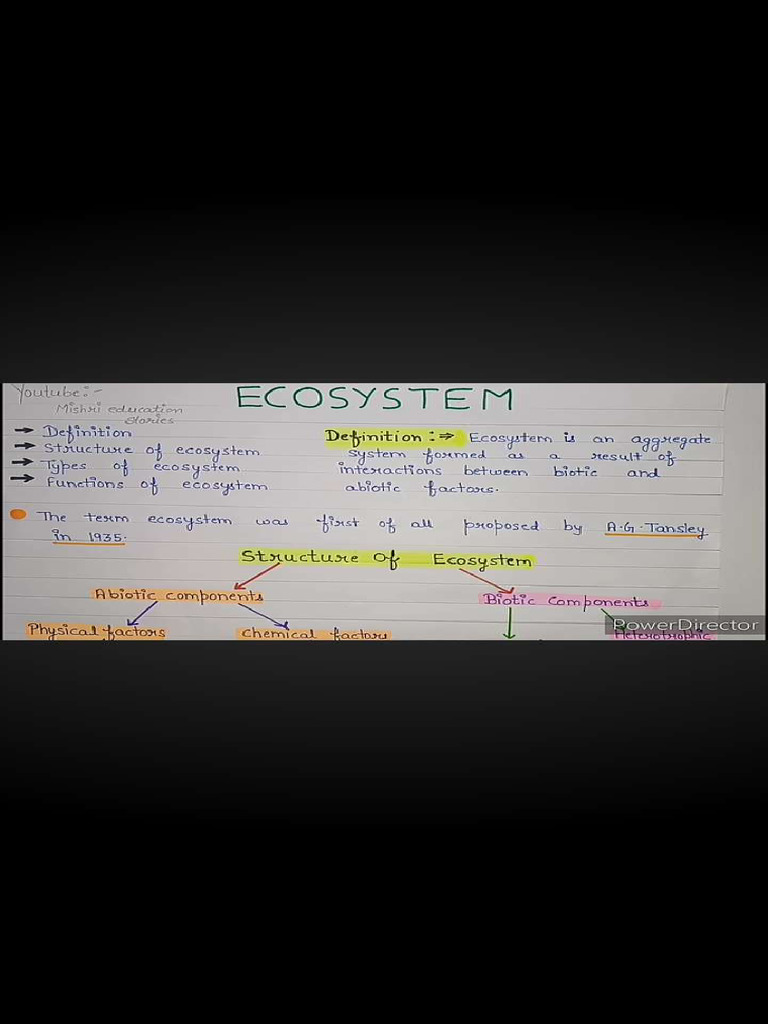 Youtube:-
Mishri education
stories
ECOSYSTEM
→ Definition
→ Structure of ecosystem
→ Types of ecosystem
→ Functions of ecosystem
Definition :⇒ Ecosystem is an aggregate
system formed as a result of
interactions between biotic and
abiotic factors.
The term ecosystem was first of all proposed by A.G. Tansley
in 1935.
Structure Of Ecosystem
Abiotic components
Biotic Components
Physical factors
Chemical factors
Heterotrophic
PowerDirector